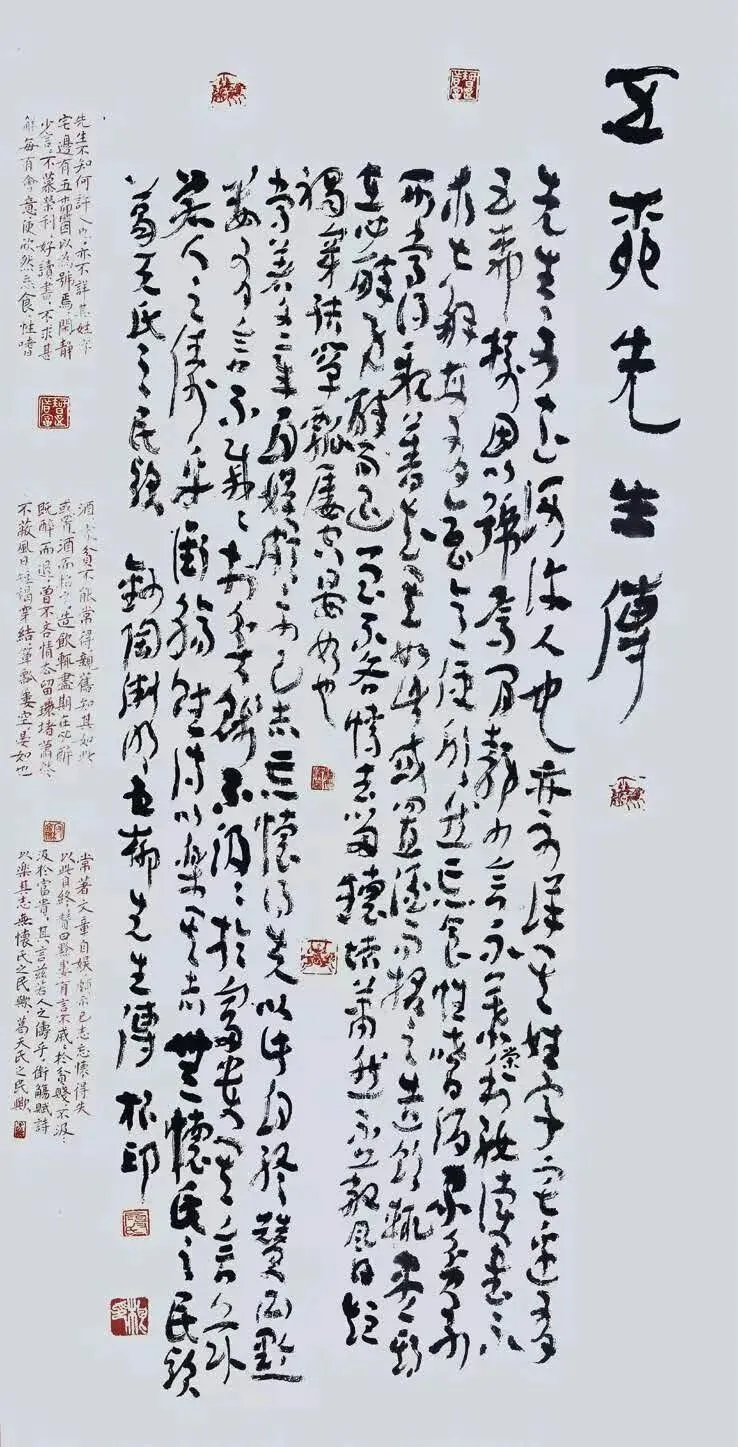 五柳先生傳
先生不知何許人也亦不詳其姓字宅邊有
五柳樹因以號焉閒靜少言不慕榮利好讀書不
求甚解每有會意便欣然忘食性嗜酒家貧不
能常得親舊知其如此或置酒而招之造飲輒盡期
在必醉既醉而退曾不吝情去留環堵蕭然不蔽風日短
褐穿結簞瓢屢空晏如也
常著文章自娛頗示己志忘懷得失以此自終贊曰黔
婁有言不戚戚於貧賤不汲汲於富貴其言茲
若人之儔乎銜觴賦詩以樂其志無懷氏之民歟
葛天氏之民歟 錄陶淵明五柳先生傳 柏印
先生不知何許人也亦不詳其姓字
宅邊有五柳樹因以為號焉閑靜
少言不慕榮利好讀書不求甚
解每有會意便欣然忘食性嗜
酒家貧不能常得親舊知其如此
或置酒而招之造飲輒盡期在必醉
既醉而退曾不吝情去留環堵蕭然
不蔽風日短褐穿結簞瓢屢空晏如也
常著文章自娛頗示己志忘懷得失
以此自終贊曰黔婁有言不戚戚於貧賤不汲
汲於富貴其言茲若人之儔乎銜觴賦詩
以樂其志無懷氏之民歟葛天氏之民歟